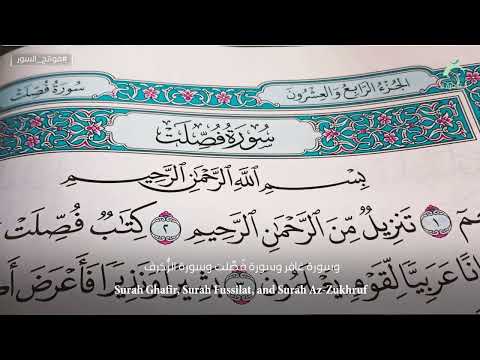 #فواتح_السور
الجُزْءُ الرَّابِعُ وَالعِشْرُونَ سُورَةُ فُصِّلَتْ
سُورَةُ فُصِّلَتْ
بِسْمِ ٱللَّهِ ٱلرَّحْمَٰنِ ٱلرَّحِيمِ
١ تَنزِيلٌ مِّنَ ٱلرَّحْمَٰنِ ٱلرَّحِيمِ ٢ كِتَٰبٌ فُصِّلَتْ
عَرَبِيًّا لِّقَوْمٍ وَنَذِيرًا فَأَعْرَضَ
وسورة غافر وسورة فصّلت وسورة الزُّخرف
Surah Ghafir, Surah Fussilat, and Surah Az-Zukhruf